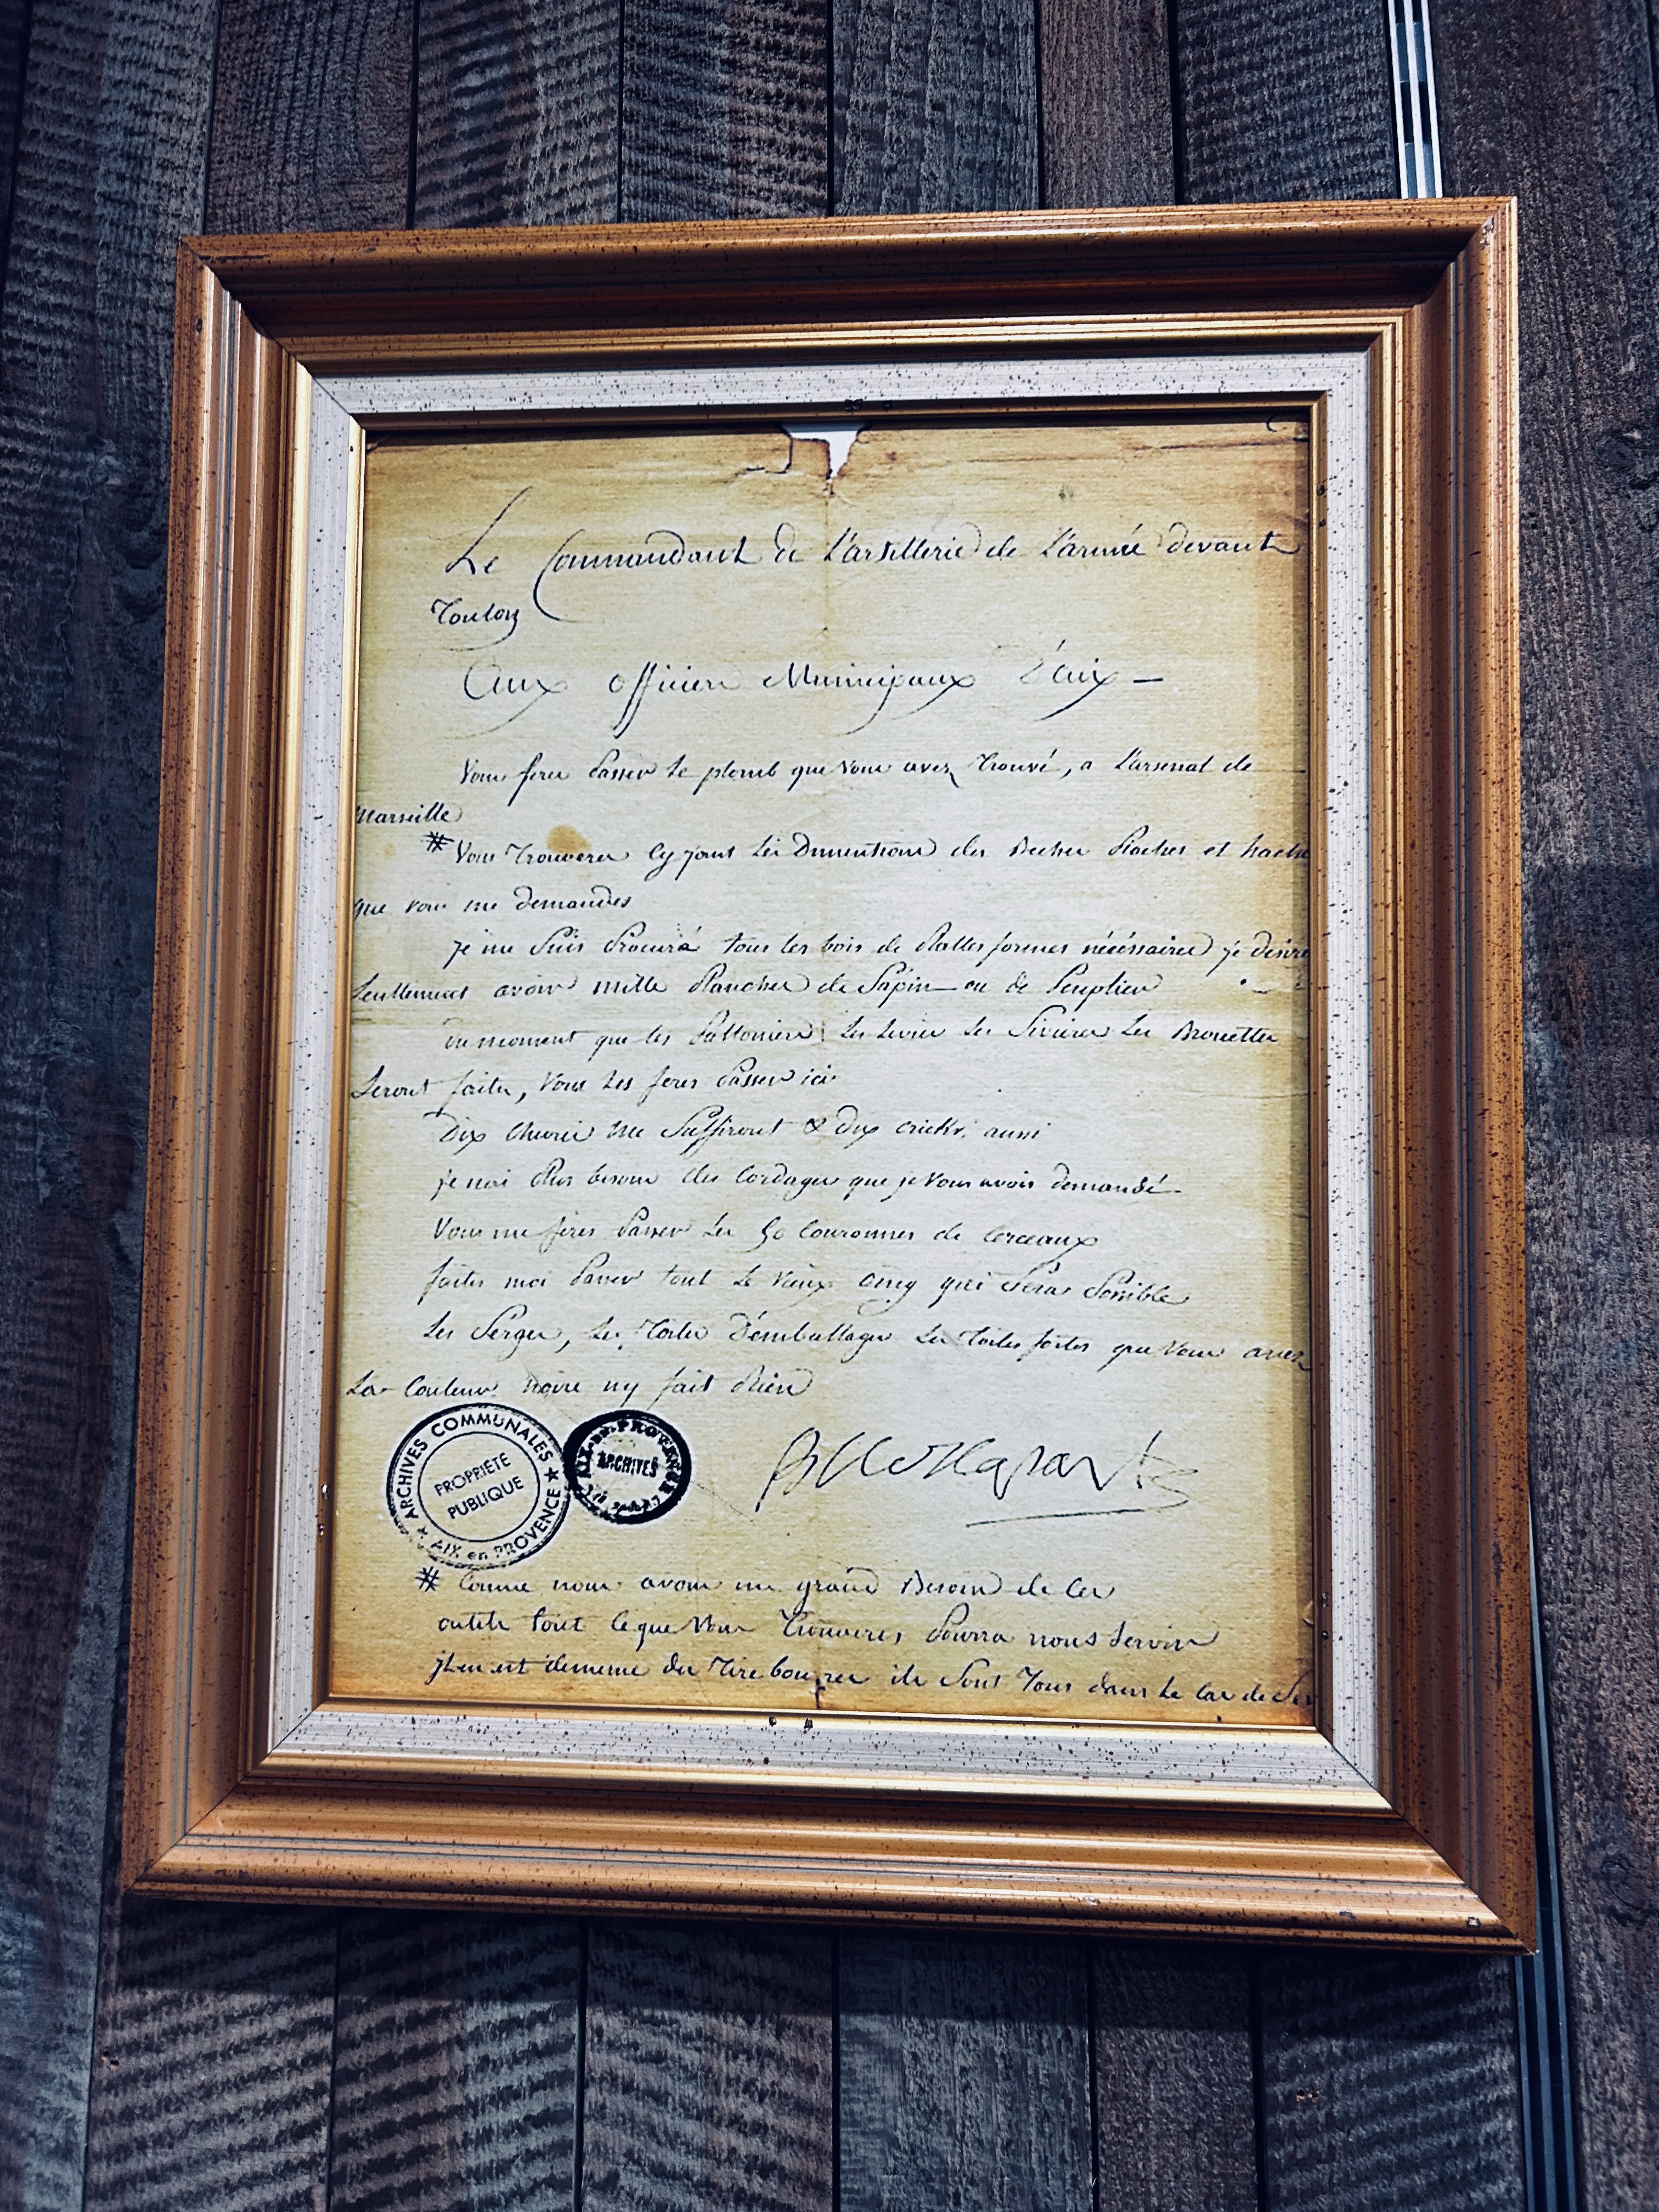 Le Commandant de L'artillerie de L'armé devant
Toulon
Aux officiers Municipaux D'aix —
Vous feres Passer le plomb que vous avez Trouvé, a L'arsenal de
Marseille
# Vous Trouveres Cy joint Les Dimentions des Beches Pioches et hache
que vous me demandes
je me Suis Procuré tous les bois de Platteformes nécéssaires je désire
Seullement avoir mille Planches de Sapin ou de Peuplier
du moment que les Les Leviers Les Sivieres Les Brouettes
Seront faites, Vous Les feres Passer ici
Dix Chevres me Suffiront & Dix cricks aussi
je nai Plus besoin des Cordages que je Vous avois demandé
Vous me feres Passer Les 50 Couronnes de Cerceaux
faites moi Passer tout Le Vieux oing qui Sera Possible
Les Serges, Les Toiles D'emballages Les Toiles fortes que Vous avez
La Couleur noire ny fait Rien
Buonaparte
ARCHIVES COMMUNALES
★ AIX en PROVENCE ★
PROPRIÉTÉ
PUBLIQUE
AIX-EN-PROVENCE
ARCHIVES
# Comme nous avons un grand Besoin de Ces
outils tout Ceque Vous Trouveres Pourra nous Servir
jlen est dememe des Tire bourres ils Sont Tous dans Le Cas de Ser